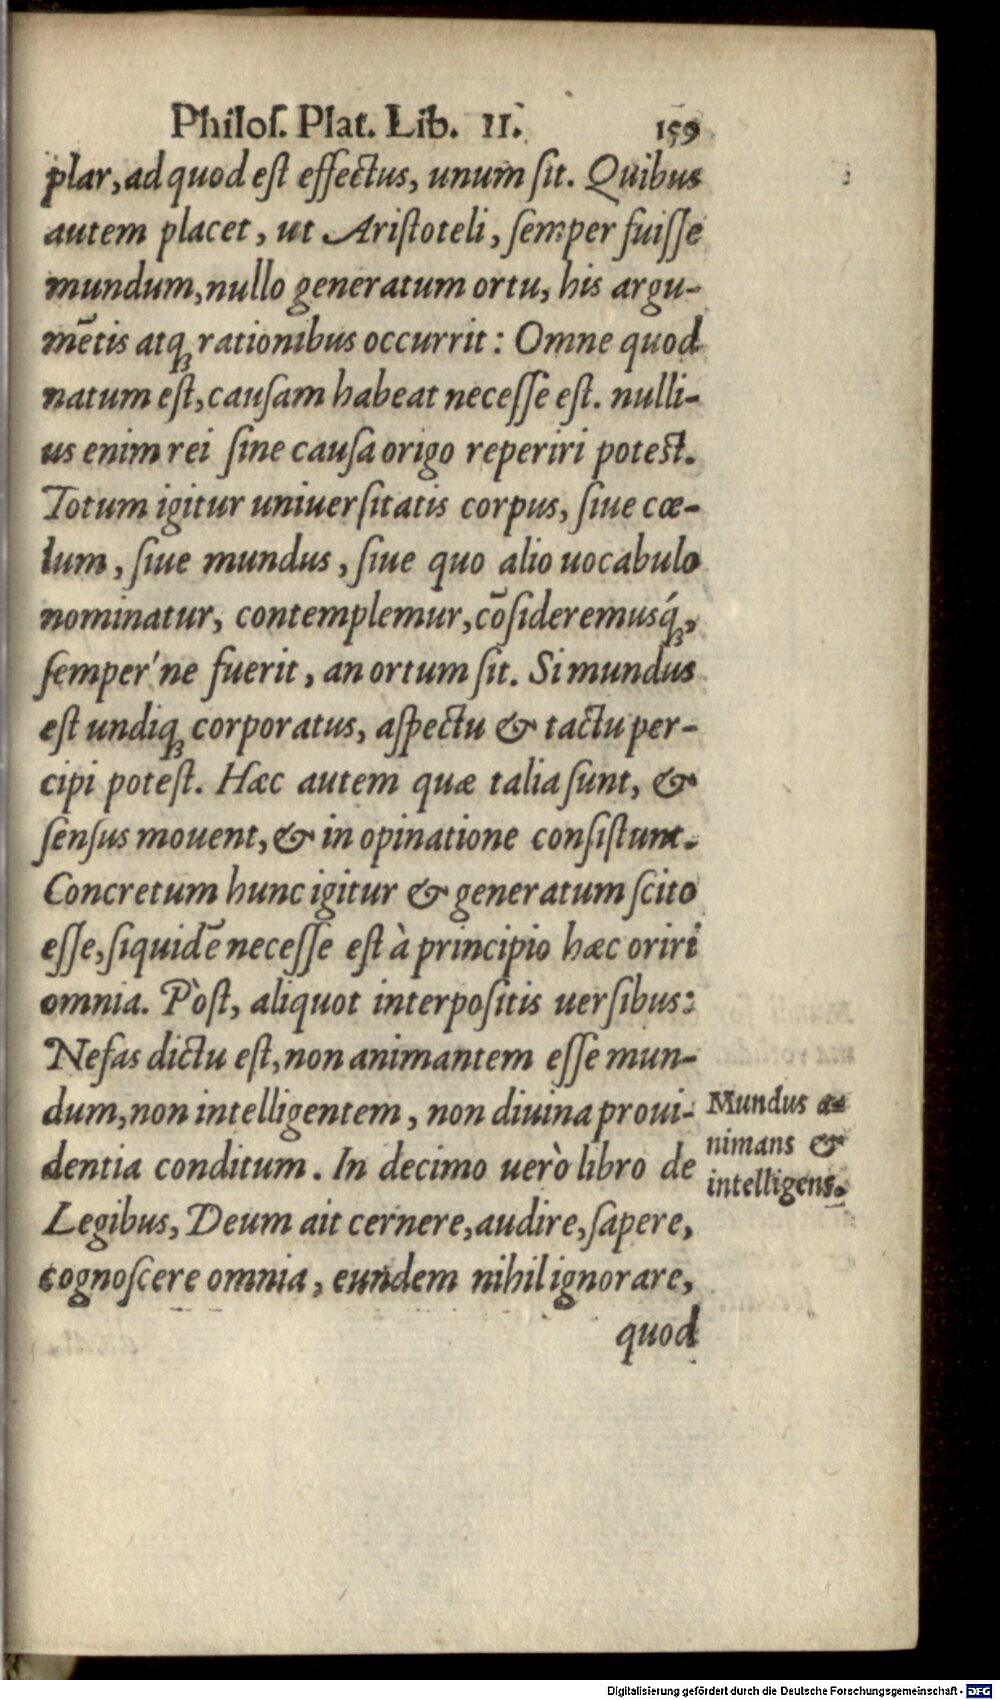 Philoſ. Plat. Lib. II. 159
plar, ad quod eſt effectus, unum ſit. Quibus
autem placet, ut Ariſtoteli, ſemper fuiſſe
mundum, nullo generatum ortu, his argu-
mẽtis atq́ꝫ rationibus occurrit: Omne quod
natum eſt, cauſam habeat neceſſe eſt. nulli-
us enim rei ſine cauſa origo reperiri poteſt.
Totum igitur uniuerſitatis corpus, ſiue cœ-
lum, ſiue mundus, ſiue quo alio uocabulo
nominatur, contemplemur, cõſideremusq́ꝫ,
ſemper'ne fuerit, an ortum ſit. Si mundus
eſt undiqꝫ corporatus, aſpectu & tactu per-
cipi poteſt. Hæc autem quæ talia ſunt, &
ſenſus mouent, & in opinatione conſiſtunt.
Concretum hunc igitur & generatum ſcito
eſſe, ſiquidẽ neceſſe eſt à principio hæc oriri
omnia. Pòſt, aliquot interpoſitis uerſibus:
Nefas dictu eſt, non animantem eſſe mun-
dum, non intelligentem, non diuina proui-
dentia conditum. In decimo uerò libro de
Legibus, Deum ait cernere, audire, ſapere,
cognoſcere omnia, eundem nihil ignorare,
quod
Mundus a-
nimans &
intelligens.
Digitalisierung gefördert durch die Deutsche Forschungsgemeinschaft - DFG